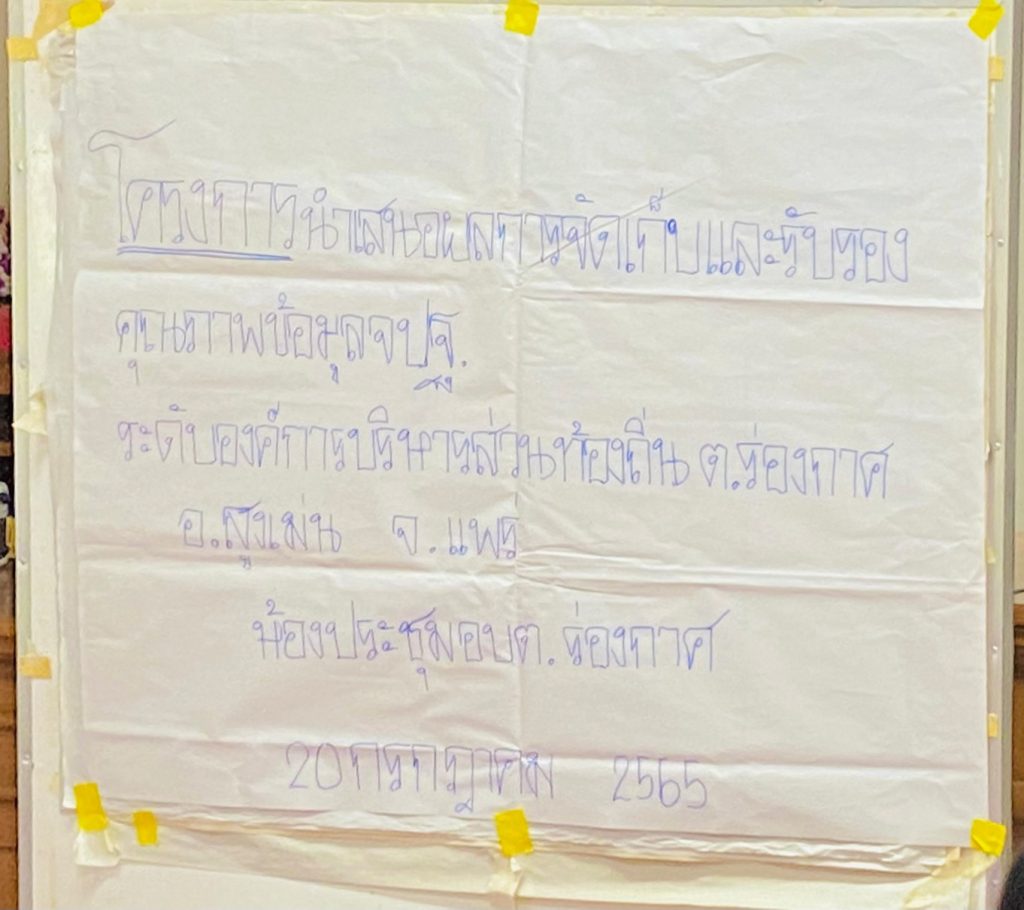 โครงการนำเสนอผลการจัดเก็บและรับรอง
คุณภาพข้อมูลจปฐ.
ระดับองค์การบริหารส่วนท้องถิ่น ต.ร่องกาศ
อ.สูงเม่น จ.แพร่
ห้องประชุมอบต.ร่องกาศ
20 กรกฎาคม 2565